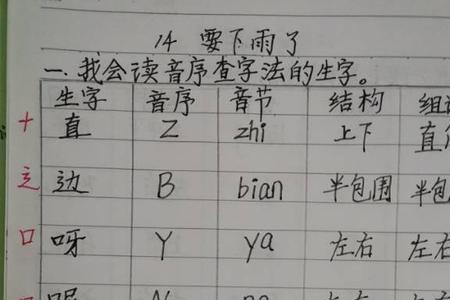 14 要下雨了
一.我会读音序查字法的生字。
生字 音序 音节 结构
十 直 Z zhi 上下
辶 边 B bian 半包围 半包
口 呀 Y ya 左右 左
呢